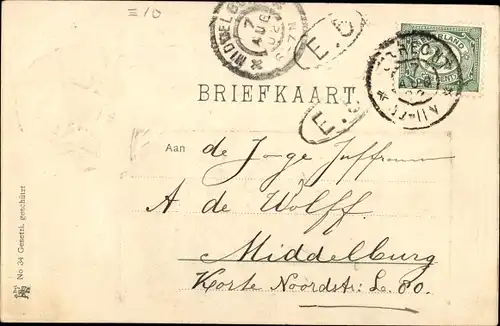 = 10
MIDDELBURG
7
AUG
02
6-7N
E.
E.
NEDERLAND
UTRECHT
7
AUG
02
BRIEFKAART.
Aan de Jonge Juffrouw
A de Wolff.
Middelburg
Korte Noordstr: L. 80.
No 34 Gesetzl. geschützt